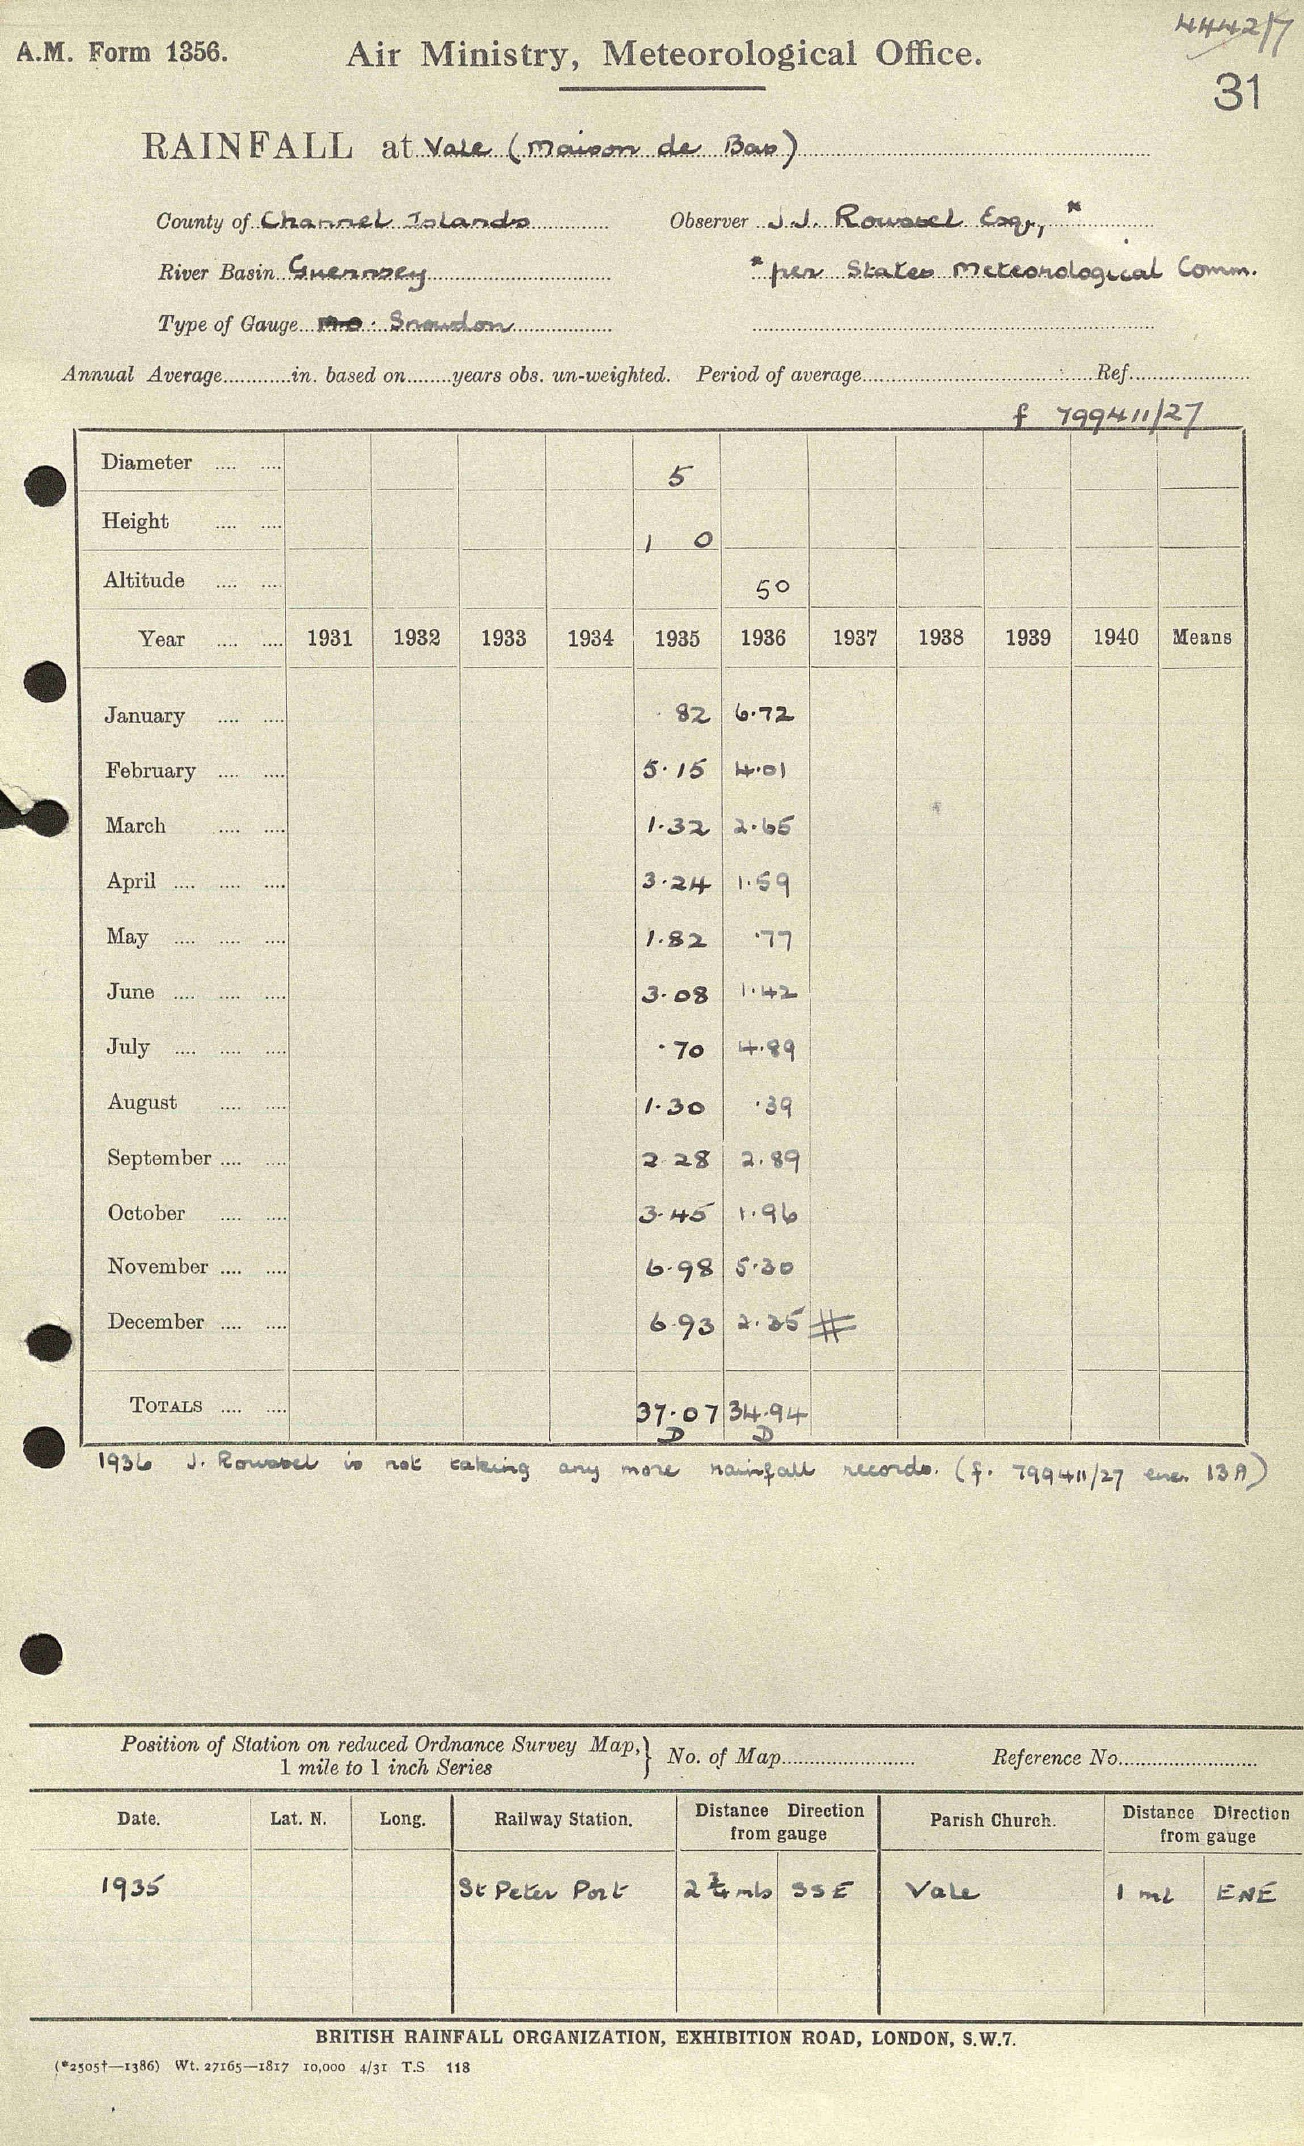 4442/7
A.M. Form 1356. Air Ministry, Meteorological Office.
31
RAINFALL at Vale (Maison de Bas)
County of Channel Islands Observer J.J. Roussel Esqr, *
River Basin Guernsey * per States Meteorological Comm.
Type of Gauge Snowdon
Annual Average............in. based on........years obs. un-weighted. Period of average.................... Ref....................
f 799411/27
Diameter .... .... 5
Height .... .... 1 0
Altitude .... .... 50
Year .... .... 1931 1932 1933 1934 1935 1936 1937 1938 1939 1940 Means
January .... .... ·82 6·72
February .... .... 5·15 4·01
March .... .... 1·32 2·65
April .... .... .... 3·24 1·59
May .... .... .... 1·82 ·77
June .... .... .... 3·08 1·42
July .... .... .... ·70 4·89
August .... .... 1·30 ·39
September .... .... 2·28 2·89
October .... .... 3·45 1·96
November .... .... 6·98 5·30
December .... .... 6·93 2·35 #
TOTALS .... .... 37·07 34·94
D D
1936 J. Roussel is not taking any more rainfall records. (f. 799411/27 enc. 13A)
Position of Station on reduced Ordnance Survey Map, } No. of Map.................... Reference No....................
1 mile to 1 inch Series
Date. Lat. N. Long. Railway Station. Distance Direction from gauge Parish Church. Distance Direction from gauge
1935 St Peter Port 2 3/4 mls SSE Vale 1 ml ENE
BRITISH RAINFALL ORGANIZATION, EXHIBITION ROAD, LONDON, S.W.7.
(*2505†—1386) Wt. 27165—1817 10,000 4/31 T.S. 118